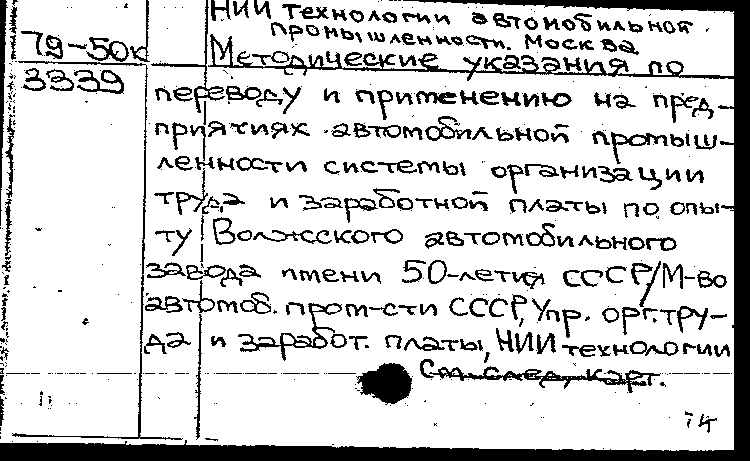 НИИ технологии автомобильной
промышленности. Москва
79-50к
Методические указания по
3339
переводу и применению на пред-
приятиях автомобильной промыш-
ленности системы организации
труда и заработной платы по опы-
ту Волжсского автомобильного
завода имени 50-летия СССР/М-во
автомоб. пром-сти СССР, Упр. орг. тру-
да и заработ. платы, НИИ технологии
См. след. карт.
74